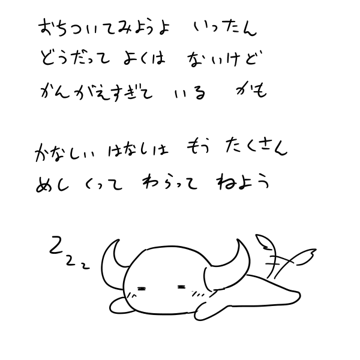 おちついてみようよ いったん
どうだって よくは ないけど
かんがえすぎて いる かも
かなしい はなしは もう たくさん
めし くって わらって ねよう
Z Z Z